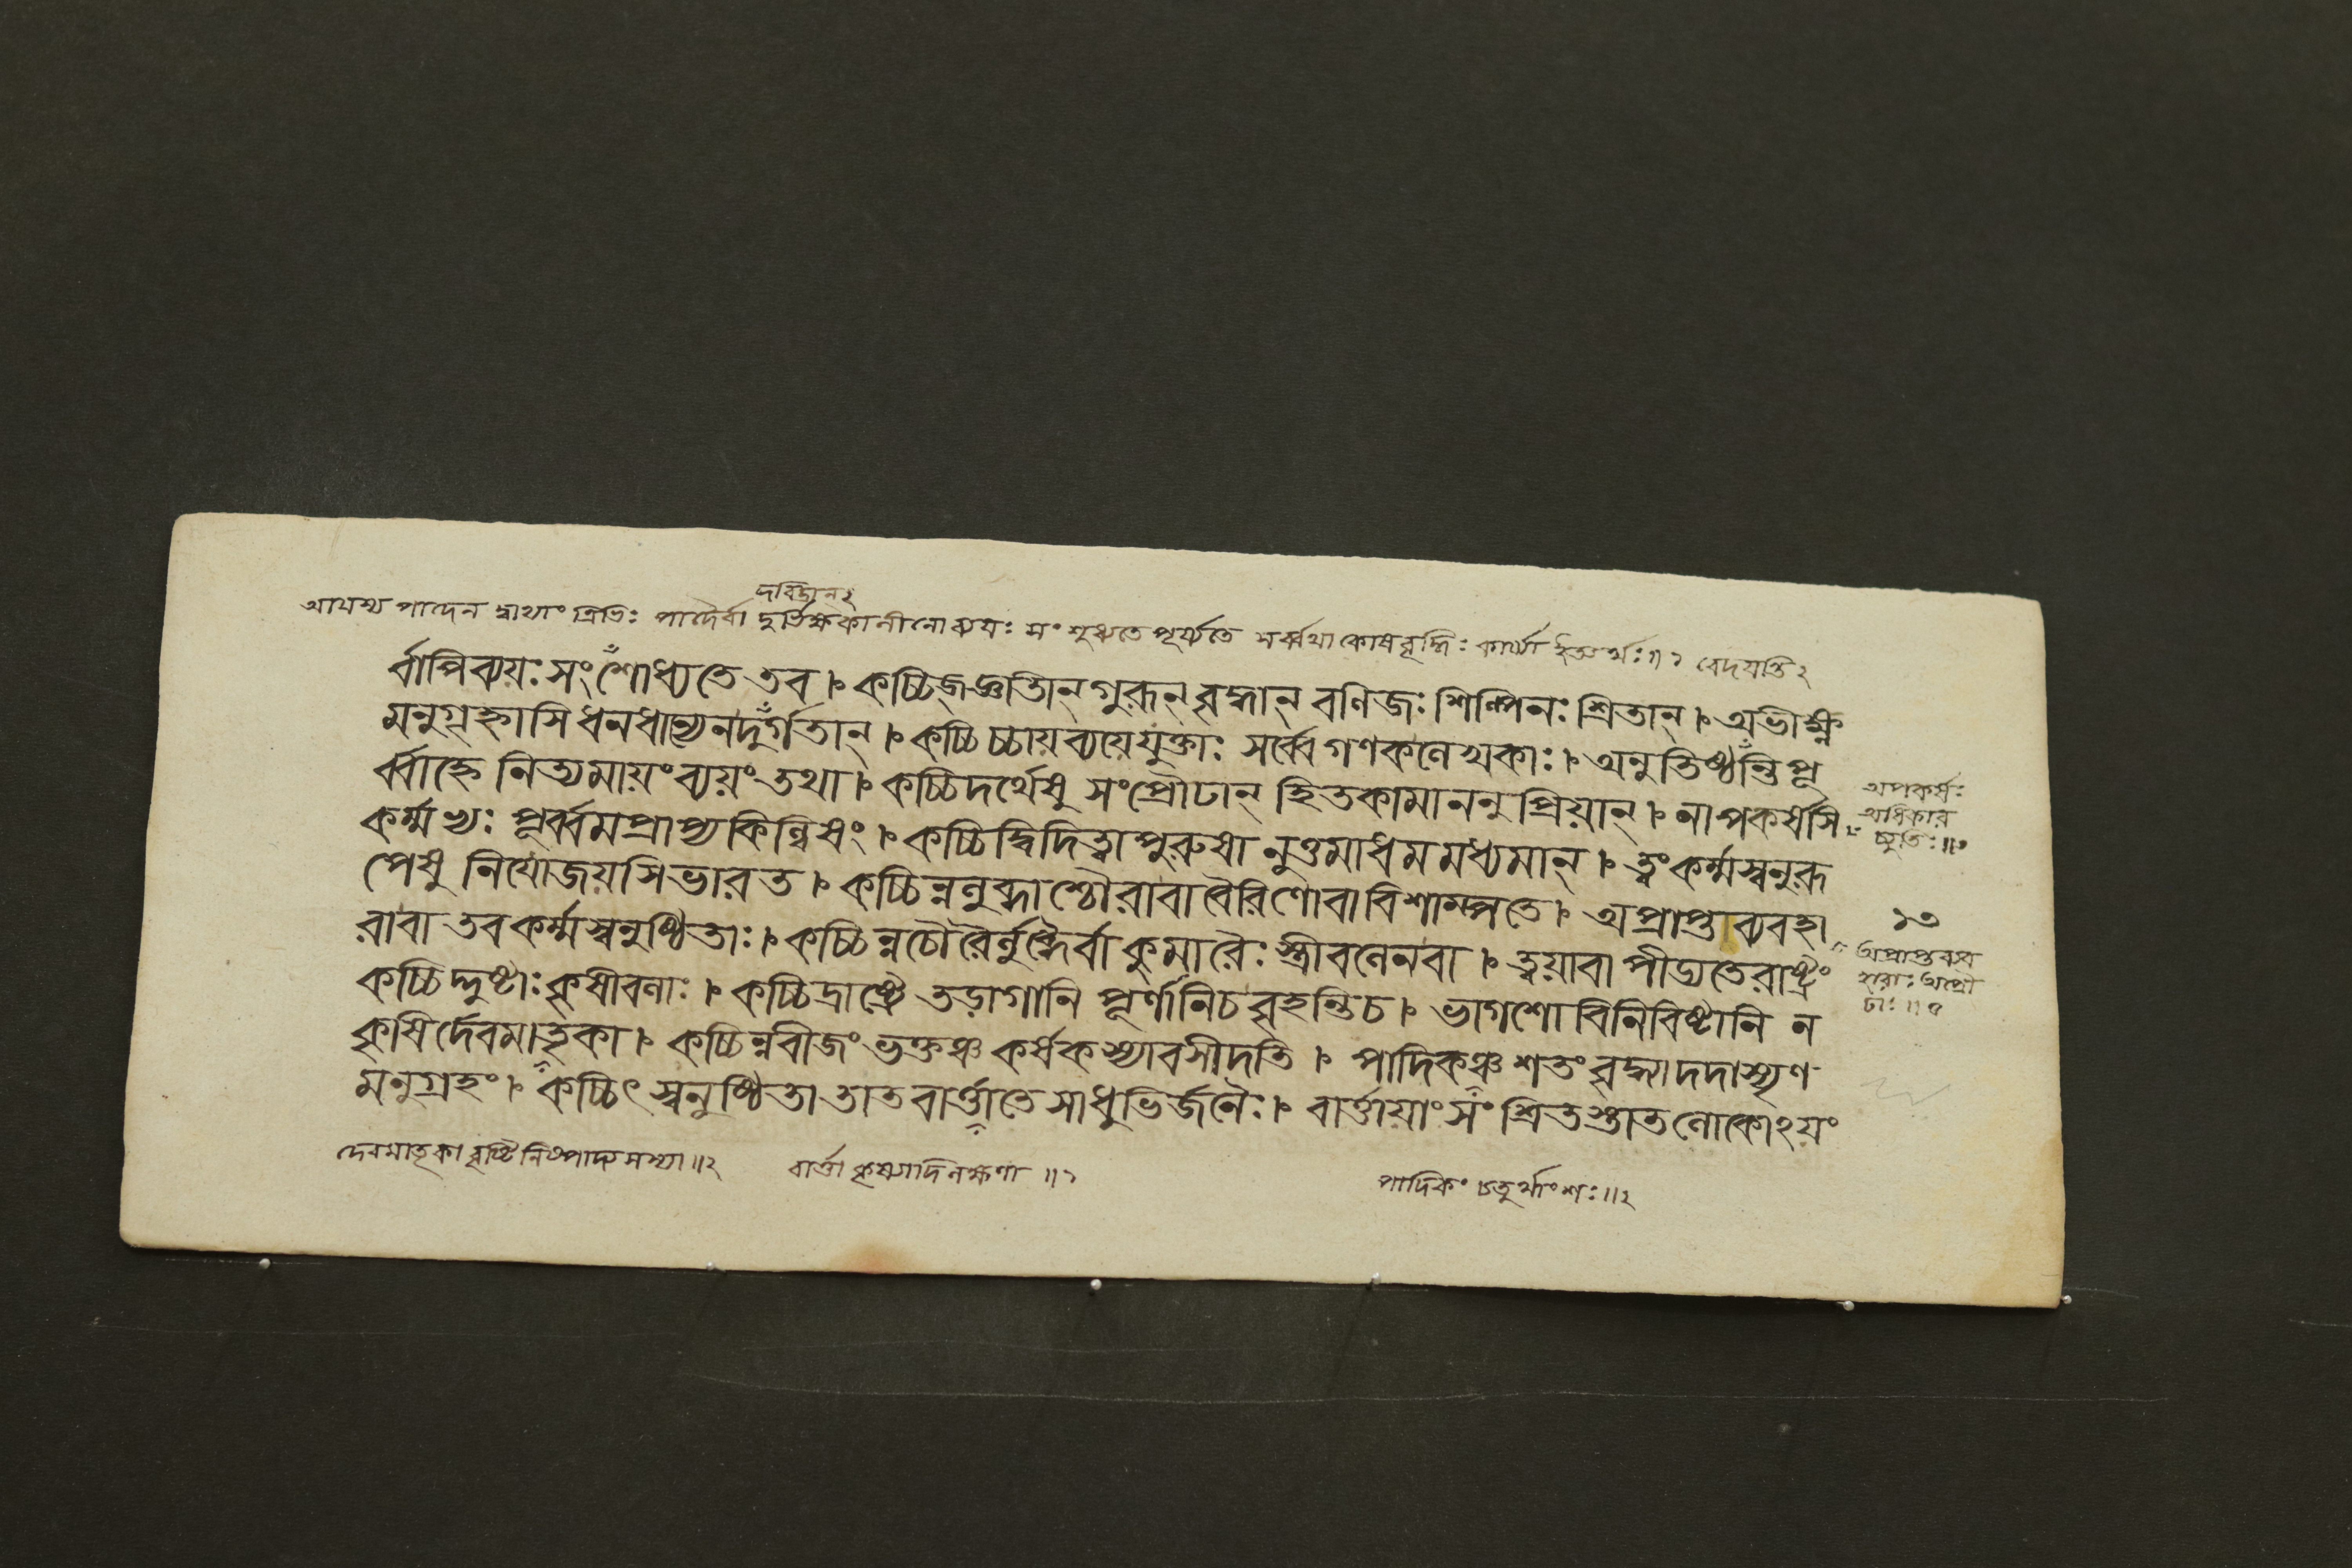 দরিদ্রান২
আয়স্য পাদেন দ্বাভ্যাং ত্রিভিঃ পাদৈর্বা দুর্ভিক্ষকালীনো ব্যয়ঃ সংশুধ্যতে পূর্য্যতে সর্ব্বথা কোষবৃদ্ধিঃ কার্য্যা ইত্যর্থঃ॥১ বেদয়ন্তি২
র্বাপিব্যয়ঃ সংশোধ্যতে তব। কচ্চিজ্জ্ঞাতীন্ গুরূন্ বৃদ্ধান্ বণিজঃ শিল্পিনঃ শ্রিতান্। অভীক্ষ্ণ
মনুগৃহ্নাসি ধনধান্যেনদুর্গতান্। কচ্চিচ্চায়ব্যয়েযুক্তাঃ সর্ব্বেগণকলেখকাঃ। অনুতিষ্ঠন্তিপূ
র্ব্বাহ্নে নিত্যমায়ংব্যয়ংতথা। কচ্চিদর্থেষু সংপ্রৌঢান্ হিতকামাননুপ্রিয়ান্। নাপকর্ষসি
কর্ম্মখ্যঃ পূর্ব্বমপ্রাপ্যকিল্বিষং। কচ্চিদ্বিদিত্বাপুরুষানুত্তমাধমমধ্যমান্। ত্বংকর্ম্মস্বনুরূ
পেষু নিযোজয়সিভারত। কচ্চিন্নলুব্ধাশ্চৌরাবা বৈরিণোবাবিশাম্পতে। অপ্রাপ্তব্যবহা
রাবা তবকর্ম্মস্বনুষ্ঠিতাঃ। কচ্চিন্নচৌরৈর্লুব্ধৈর্বাকুমারৈঃ স্ত্রীবলেনবা। ত্বয়াবাপীড্যতেরাষ্ট্রং
কচ্চিদ্দুষ্টাঃকৃষীবলাঃ। কচ্চিদ্রাষ্ট্রে তড়াগানি পূর্ণানিচবৃহন্তিচ। ভাগশোবিনিবিষ্টানি ন
কৃষির্দেবমাতৃকা। কচ্চিন্নবীজংভক্তঞ্চ কর্ষকস্যাবসীদতি। পাদিকঞ্চশতংবৃদ্ধ্যাদদাস্যৃণ
মনুগ্রহং। কচ্চিৎস্বনুষ্ঠিতাতাতবার্ত্তাতেসাধুভির্জনৈঃ। বার্ত্তায়াংসংশ্রিতস্তাতলোকোঽয়ং
দেবমাতৃকা বৃষ্টিনিষ্পাদ্যসস্যা॥২ বার্ত্তা কৃষ্যাদিলক্ষণা॥১ পাদিকং চতুর্থাংশঃ॥২
অপকর্ষঃ
অধিকার
চ্যুতিঃ॥১
১৩
অপ্রাপ্তব্যব
হারাঃ অপ্রৌ
ঢাঃ॥